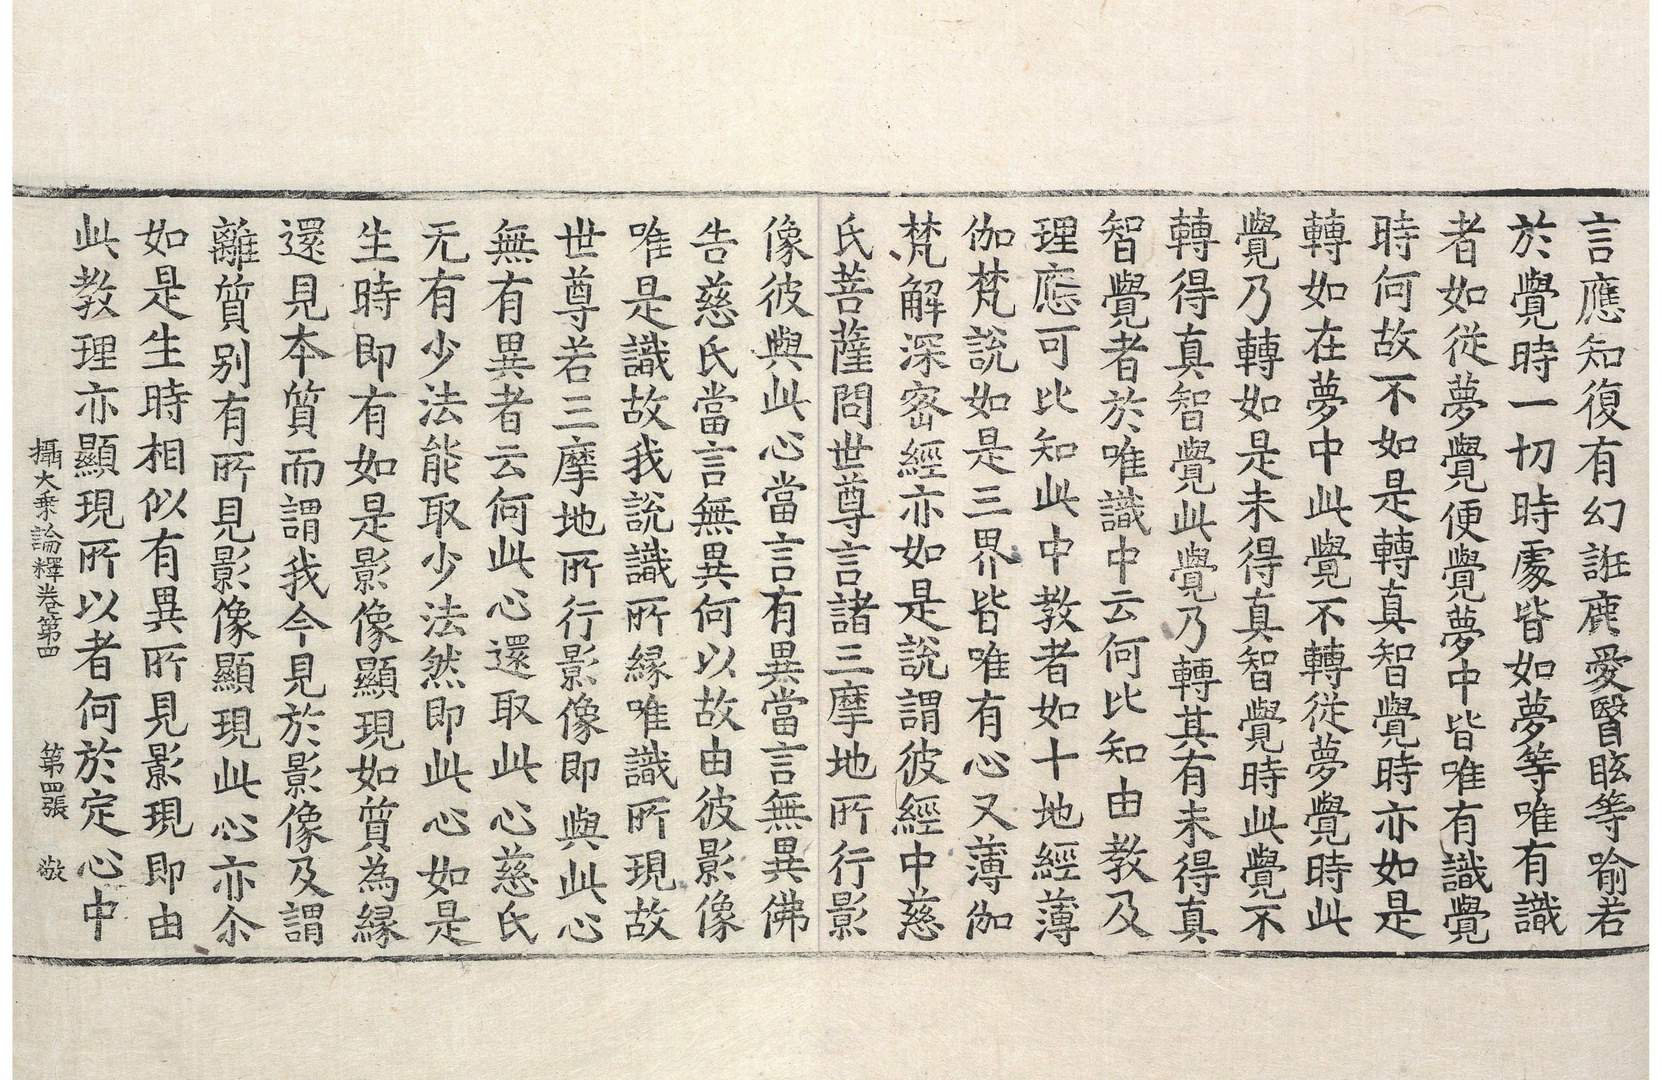 言應知復有幻誑鹿愛瞖眩等喻若
於覺時一切時處皆如夢等唯有識
者如從夢覺便覺夢中皆唯有識覺
時何故不如是轉真智覺時亦如是
轉如在夢中此覺不轉從夢覺時此
覺乃轉如是未得真智覺時此覺不
轉得真智覺此覺乃轉其有未得真
智覺者於唯識中云何比知由教及
理應可比知此中教者如十地經薄
伽梵說如是三界皆唯有心又薄伽
梵解深密經亦如是說謂彼經中慈
氏菩薩問世尊言諸三摩地所行影
像彼與此心當言有異當言無異佛
告慈氏當言無異何以故由彼影像
唯是識故我說識所緣唯識所現故
世尊若三摩地所行影像即與此心
無有異者云何此心還取此心慈氏
无有少法能取少法然即此心如是
生時即有如是影像顯現如質為緣
還見本質而謂我今見於影像及謂
離質別有所見影像顯現此心亦尒
如是生時相似有異所見影現即由
此教理亦顯現所以者何於定心中
攝大乗論釋卷第四　第四張　敬